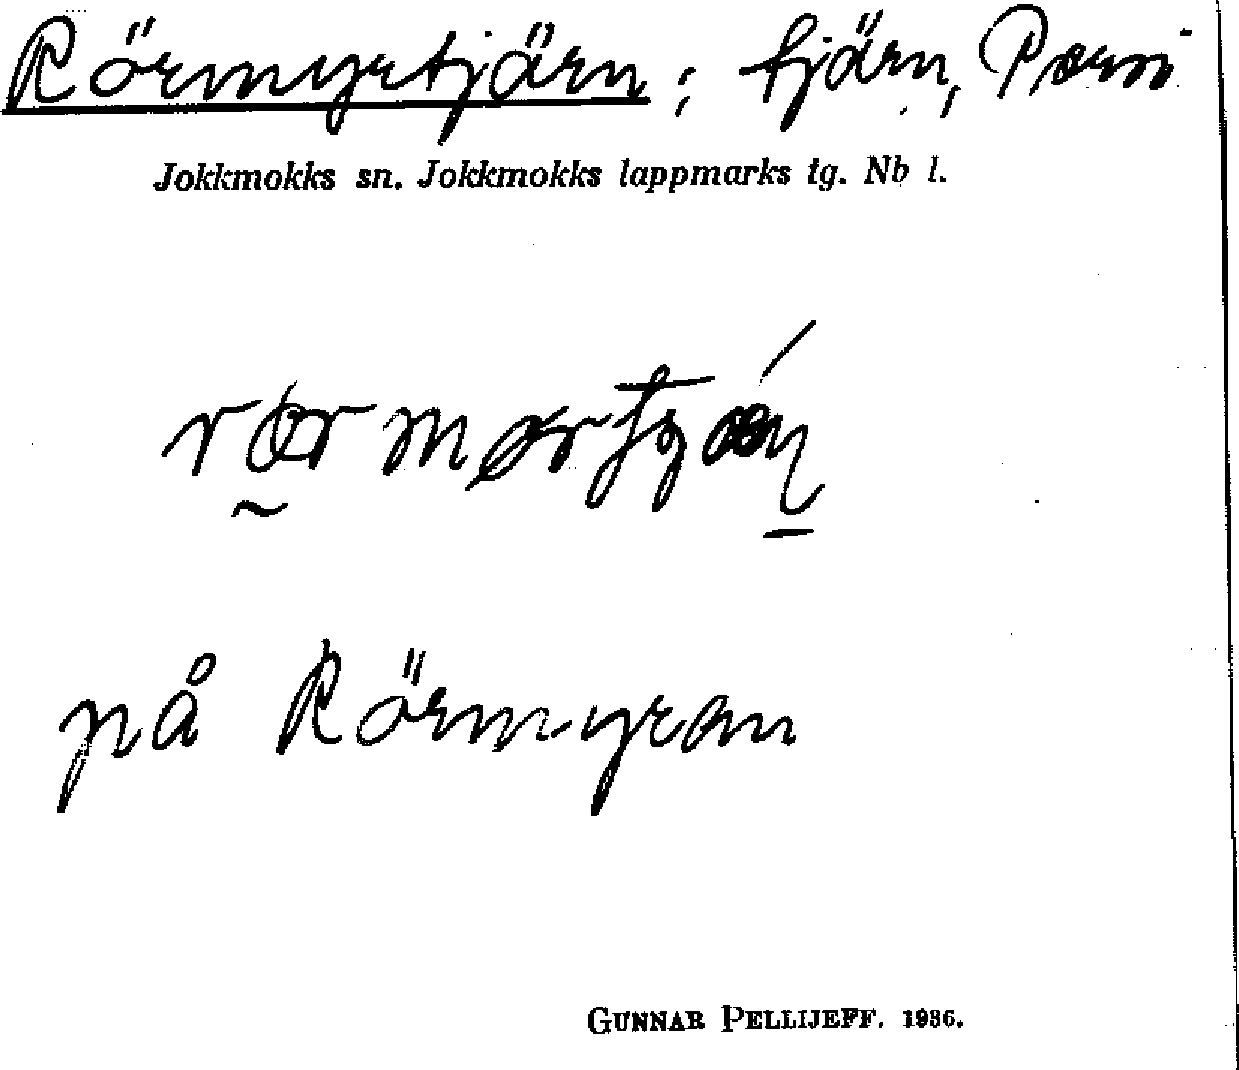 Rörmyrtjärn; tjärn, Porsi
Jokkmokks sn. Jokkmokks lappmarks tg. Nb l.
på Rörmyran
GUNNAR PELLIJEFF. 1936.